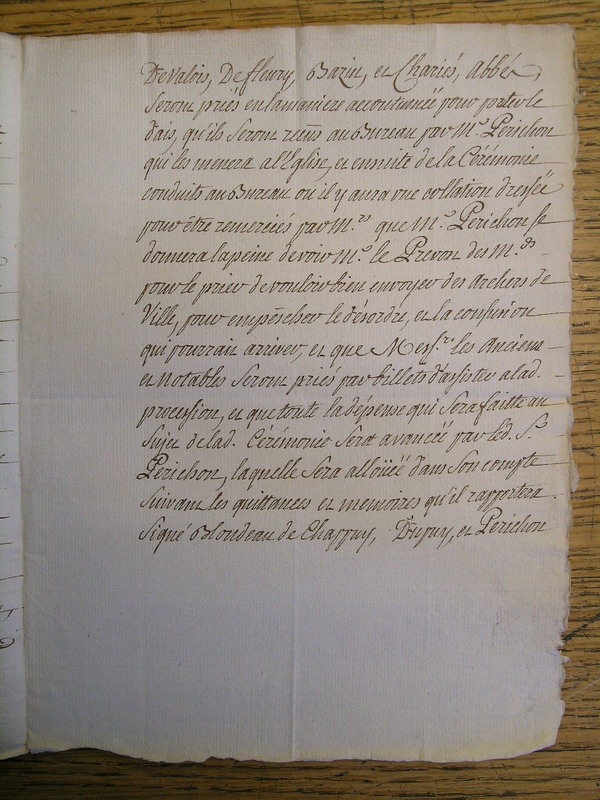 De Valois, De fleury, Bazin, et Chariés, Abbés,
Seront priés en la maniere accoutumée pour porter le
dais, qu'ils Seront recûs au Bureau par M.r Perichon
qui les menera a l'Eglise, et ensuite de la Cérémonie
conduits au Bureau où il y aura une collation dressée
pour être remerciés par M.rs que M.r Perichon se
donnera la peine de voir M.r le Prevon des M.ds
pour le prier de vouloir bien envoyer des Archers de
Ville, pour empêscher le désordre, et la confusion
qui pourrait arriver, et que Mess.rs les Anciens
et Notables Seront priés par billets d'assister a lad.
procession, et que toute la dépense qui Sera faitte au
Sujet de lad. Cérémonie Sera avancée par led. S.r
Perichon, laquelle Sera allouée dans son compte
suivant les quittances et memoires qu'il rapportera.
Signé Blondeau de Chappuy, Dupuy, et Perichon